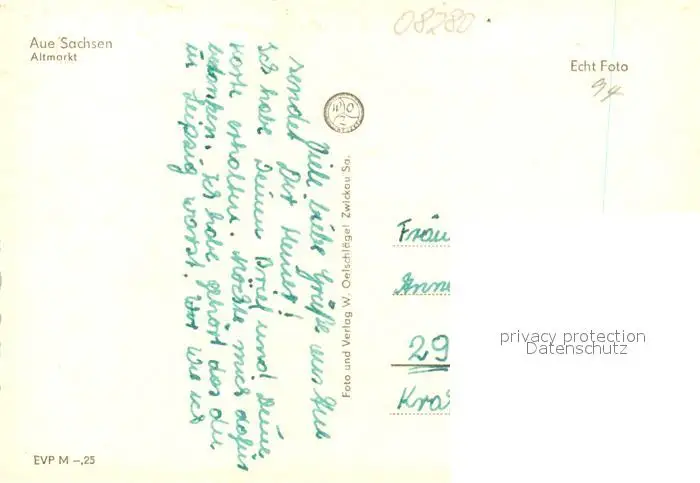 08280
Aue Sachsen
Altmarkt
Echt Foto
94
Viele liebe Grüße aus Aue
sendet Dir Heiner!
Ich habe Deinen Brief und Deine
Karte erhalten. Möchte mich dafür
bedanken. Ich habe gehört das du
in Leipzig warst. Wo wie ich
Foto und Verlag W. Oelschlägel Zwickau Sa.
Fräu
Anne
29
Kra
privacy protection
Datenschutz
EVP M -,25